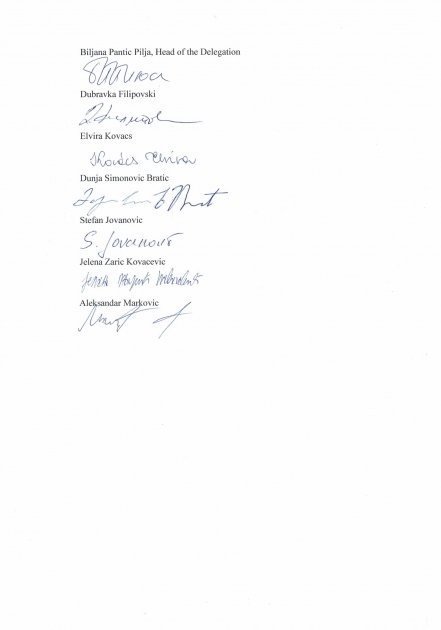 Biljana Pantic Pilja, Head of the Delegation
Dubravka Filipovski
Elvira Kovacs
Kovács Elvira
Dunja Simonovic Bratic
Stefan Jovanovic
S. Jovanović
Jelena Zaric Kovacevic
Aleksandar Markovic